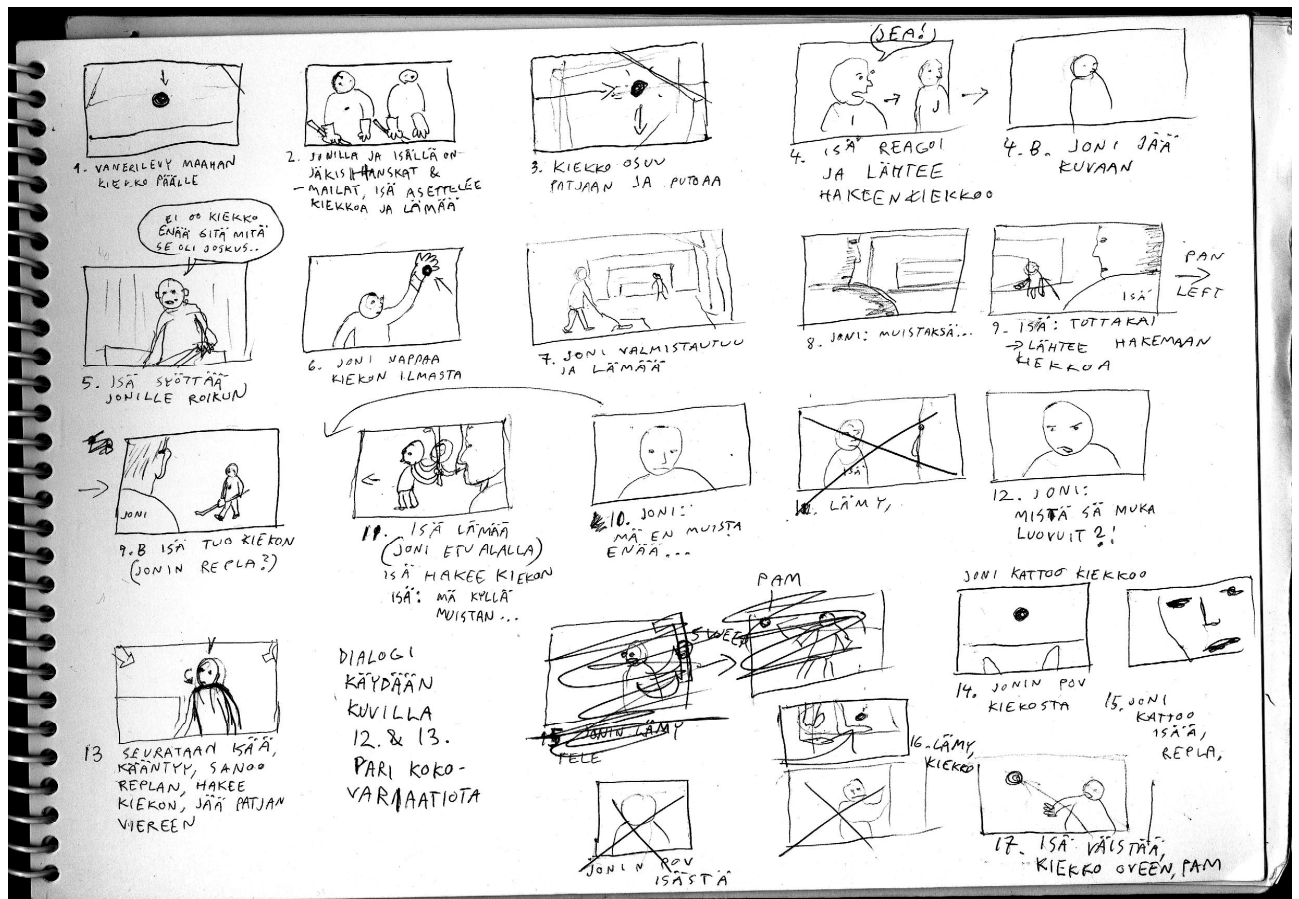 1. VANERILEVY MAAHAN
KIEKKO PÄÄLLE
2. JONILLA JA ISÄLLÄ ON
JÄKIS HANSKAT &
MAILAT, ISÄ ASETTELEE
KIEKKOA JA LÄMÄÄ
3. KIEKKO OSUU
PATJAAN JA PUTOAA
(JEA!)
I
J
4. ISÄ REAGOI
JA LÄHTEE
HAKEEN KIEKKOO
4.B. JONI JÄÄ
KUVAAN
EI OO KIEKKO
ENÄÄ SITÄ MITÄ
SE OLI JOSKUS..
5. ISÄ SYÖTTÄÄ
JONILLE ROIKUN
6. JONI NAPPAA
KIEKON ILMASTA
7. JONI VALMISTAUTUU
JA LÄMÄÄ
8. JONI: MUISTAKSÄ...
ISÄ
PAN
LEFT
9. ISÄ: TOTTAKAI
→ LÄHTEE HAKEMAAN
KIEKKOA
JONI
9.B ISÄ TUO KIEKON
(JONIN REPLA?)
11. ISÄ LÄMÄÄ
(JONI ETUALALLA)
ISÄ HAKEE KIEKON
ISÄ: MÄ KYLLÄ
MUISTAN...
10. JONI:
MÄ EN MUISTA
ENÄÄ...
ISÄ
LÄMY,
12. JONI:
MISTÄ SÄ MUKA
LUOVUIT?!
13 SEURATAAN ISÄÄ,
KÄÄNTYY, SANOO
REPLAN, HAKEE
KIEKON, JÄÄ PATJAN
VIEREEN
DIALOGI
KÄYDÄÄN
KUVILLA
12. & 13.
PARI KOKO-
VARIAATIOTA
PAM
JONIN LÄMY
TELE
JONI KATTOO KIEKKOO
14. JONIN POV
KIEKOSTA
15. JONI
KATTOO
ISÄÄ,
REPLA,
16. LÄMY,
KIEKKO
JONIN POV
ISÄSTÄ
17. ISÄ VÄISTÄÄ,
KIEKKO OVEEN, PAM